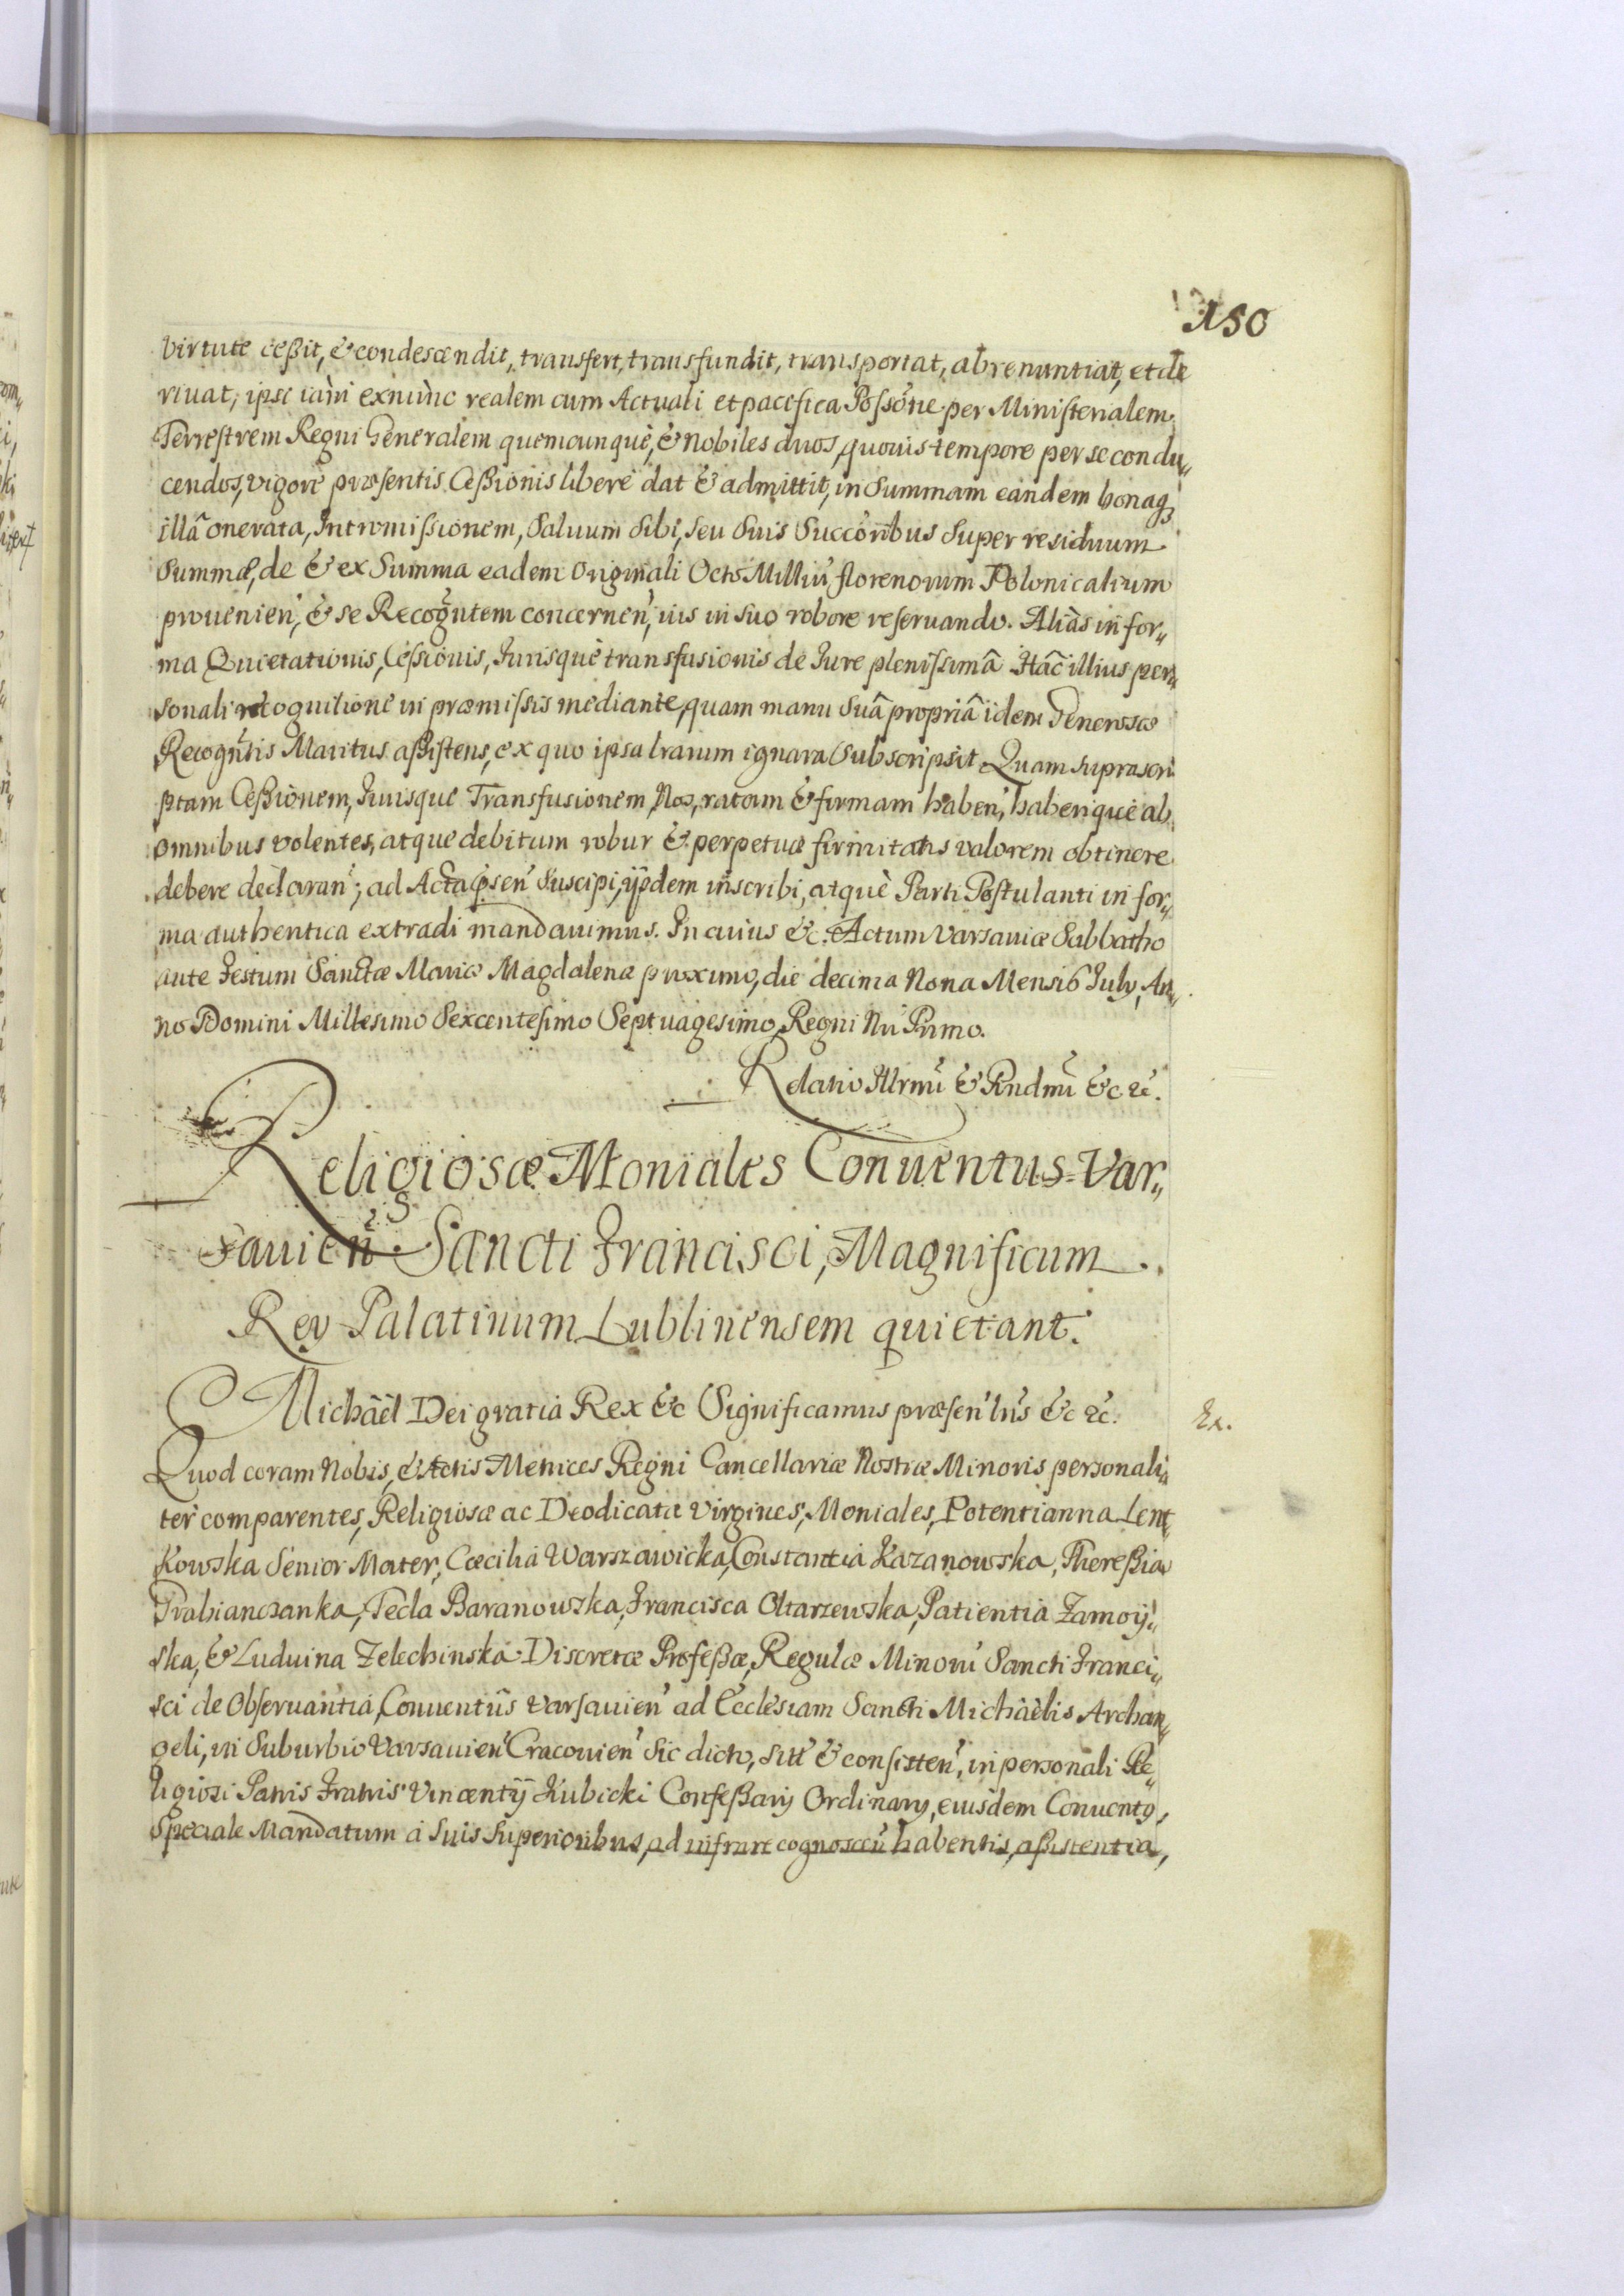 150
virtute ceßit, & condescendit, transfert, transfundit, transportat, abrenuntiat, et de
riuat, ipse iam exnunc realem cum Actuali et pacifica Possone per Ministerialem
Terrestrem Regni Generalem quemcunque, & Nobiles duos, quouis tempore per se condu„
cendos, vigore præsentis Ceßionis libere dat & admittit, in Summam eandem bonaq;
illa onerata, Intromißionem, Saluum Sibi, seu Suis Succoribus Super residuum
Summæ, de & ex Summa eadem Originali Octo Milliu florenorum Polonicalium
prouenien, & se Recogntem concernen, ius in suo robore reseruando. Aliàs in for„
ma Quietationis, Cessionis, Jurisquè transfusionis de Jure plenissimâ Hâc illius per„
sonali recognitione in præmissis mediante, quam manu Suâ propriâ idem Generosæ
Recogntis Maritus aßistens, ex quo ipsa lrarum ignara Subscripsit. Quam suprascri
ptam Ceßionem, Jurisque Transfusionem, Nos, ratam & firmam haben, haberique ab
omnibus volentes, atque debitum robur & perpetuæ firmitatis valorem obtinere
debere declaran; ad Acta psen Suscipi, ijsdem inscribi, atquè Parti Postulanti in for„
ma authentica extradi mandauimus. In cuius &c. Actum Varsauiæ Sabbatho
ante Festum Sanctæ Mariæ Magdalenæ proximo, die decima Nona Mensis July, An„
no Domini Millesimo Sexcentesimo Septuagesimo, Regni Nri Primo.
Relatio Illrmi & Rndmi &c. &c.
Religiosæ Moniales Conuentus Var„
sauien S. Sancti Francisci, Magnificum
Rey Palatinum Lublinensem quietant.
Michâêl Dei gratia Rex &c Significamus præsen lris &c &c.
Ex.
Quod coram Nobis, & Actis Metrices Regni Cancellariæ Nostræ Minoris personali„
ter comparentes, Religiosæ ac Deodicatæ Virgines, Moniales, Potentianna Lent„
kowska Senior Mater, Cæcilia Warszawicka, Constantia Kazanowska, Thereßia
Grabianczanka, Tecla Baranowska, Francisca Oltarzewska, Patientia Zamoy„
ska, & Luduina Zelechinska Discretæ Profeßæ, Regulæ Minoru Sancti Franci„
sci de Obseruantia, Conuentûs Varsauien ad Ecclesiam Sancti Michâelis Archan„
geli, in Suburbio Varsauien Cracouien Sic dicto, siti & consisten, in personali Re„
ligiosi Patris Fratris Vincentÿ Kubicki Confeßarij Ordinarij, eiusdem Conuentus,
Speciale Mandatum a Suis Superioribus, ad infra recognoscen habentis, aßistentia,